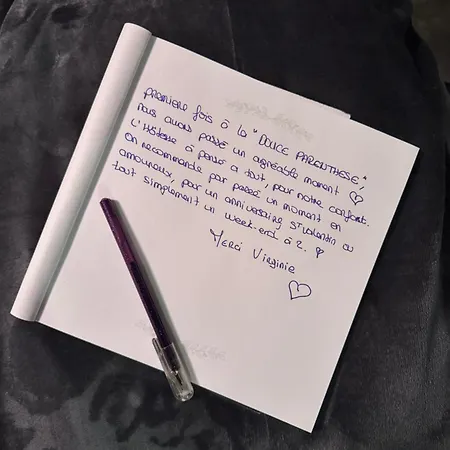 PREMIERE fois à la "DOUCE PARENTHESE",
nous avons passé un agréable moment ♡
L'Hôtesse à penser à tout, pour notre confort.
On recommande par passé un moment en
amoureux, pour un anniversaire St valentin ou
tout simplement un week-end à 2. ♡
Merci Virginie
♡